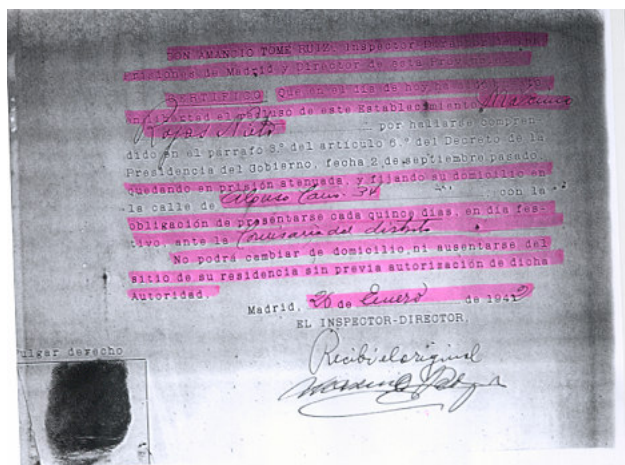 DON AMANCIO TOME RUIZ, Inspector
Prisiones de Madrid y Director de esta
CERTIFICO Que en el dia de hoy
en libertad el recluso de este Establecimiento
Rojas Nieto por hallarse compren
dido en el parrafo 3.º del articulo 6.º del Decreto de la
Presidencia del Gobierno, fecha 2 de septiembre pasado,
quedando en prisión atenuada, y fijando su domicilio en
la calle de Alfonso Cano-34 con la
obligación de presentarse cada quince dias, en dia fes-
tivo, ante la Comisaria del distrito
No podrá cambiar de domicilio, ni ausentarse del
sitio de su residencia sin previa autorización de dicha
Autoridad.
Madrid, 26 de Enero de 1942
EL INSPECTOR-DIRECTOR,
Recibi el original
ulgar derecho